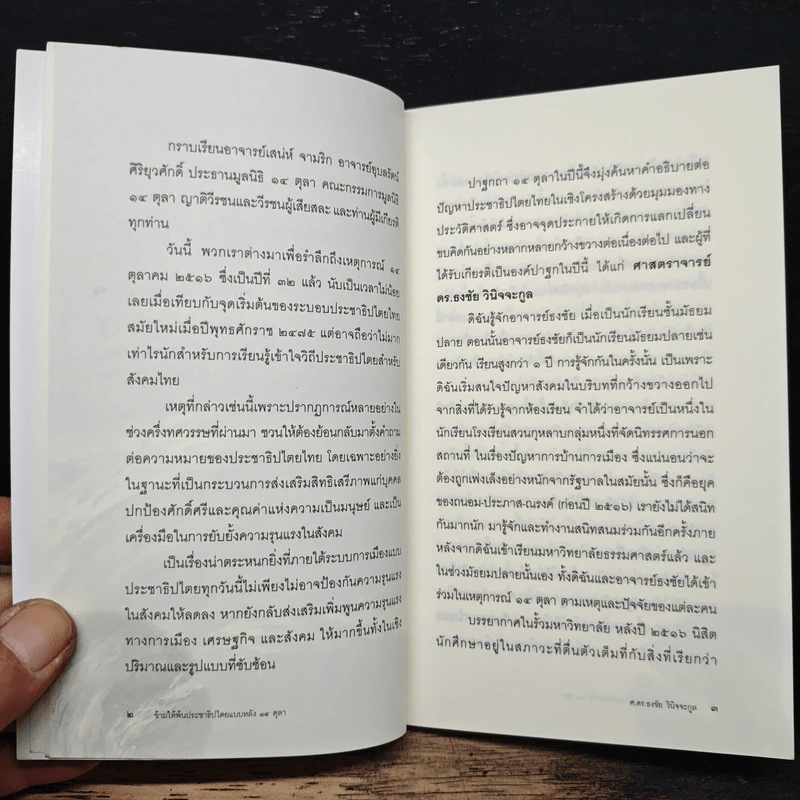 กราบเรียนอาจารย์เสน่ห์ จามริก อาจารย์อุบลรัตน์
ศิริยุวศักดิ์ ประธานมูลนิธิ ๑๔ ตุลา คณะกรรมการมูลนิธิ
๑๔ ตุลา ญาติวีรชนและวีรชนผู้เสียสละ และท่านผู้มีเกียรติ
ทุกท่าน
วันนี้ พวกเราต่างมาเพื่อรำลึกถึงเหตุการณ์ ๑๔
ตุลาคม ๒๕๑๖ ซึ่งเป็นปีที่ ๓๒ แล้ว นับเป็นเวลาไม่น้อย
เลยเมื่อเทียบกับจุดเริ่มต้นของระบอบประชาธิปไตยไทย
สมัยใหม่เมื่อปีพุทธศักราช ๒๔๗๕ แต่อาจถือว่าไม่มาก
เท่าไรนักสำหรับการเรียนรู้เข้าใจวิถีประชาธิปไตยสำหรับ
สังคมไทย
เหตุที่กล่าวเช่นนี้เพราะปรากฏการณ์หลายอย่างใน
ช่วงครึ่งทศวรรษที่ผ่านมา ชวนให้ต้องย้อนกลับมาตั้งคำถาม
ต่อความหมายของประชาธิปไตยไทย โดยเฉพาะอย่างยิ่ง
ในฐานะที่เป็นกระบวนการส่งเสริมสิทธิเสรีภาพแก่บุคคล
ปกป้องศักดิ์ศรีและคุณค่าแห่งความเป็นมนุษย์ และเป็น
เครื่องมือในการยับยั้งความรุนแรงในสังคม
เป็นเรื่องน่าตระหนกยิ่งที่ภายใต้ระบบการเมืองแบบ
ประชาธิปไตยทุกวันนี้ไม่เพียงไม่อาจป้องกันความรุนแรง
ในสังคมให้ลดลง หากยังกลับส่งเสริมเพิ่มพูนความรุนแรง
ทางการเมือง เศรษฐกิจ และสังคม ให้มากขึ้นทั้งในเชิง
ปริมาณและรูปแบบที่ซับซ้อน
๒ ข้ามให้พ้นประชาธิปไตยแบบหลัง ๑๔ ตุลา
ปาฐกถา ๑๔ ตุลาในปีนี้จึงมุ่งค้นหาคำอธิบายต่อ
ปัญหาประชาธิปไตยไทยในเชิงโครงสร้างด้วยมุมมองทาง
ประวัติศาสตร์ ซึ่งอาจจุดประกายให้เกิดการแลกเปลี่ยน
ขบคิดกันอย่างหลากหลายกว้างขวางต่อเนื่องต่อไป และผู้ที่
ได้รับเกียรติเป็นองค์ปาฐกในปีนี้ ได้แก่ ศาสตราจารย์
ดร.ธงชัย วินิจจะกูล
ดิฉันรู้จักอาจารย์ธงชัย เมื่อเป็นนักเรียนชั้นมัธยม
ปลาย ตอนนั้นอาจารย์ธงชัยก็เป็นนักเรียนมัธยมปลายเช่น
เดียวกัน เรียนสูงกว่า ๑ ปี การรู้จักกันในครั้งนั้น เป็นเพราะ
ดิฉันเริ่มสนใจปัญหาสังคมในบริบทที่กว้างขวางออกไป
จากสิ่งที่ได้รับรู้จากห้องเรียน จำได้ว่าอาจารย์เป็นหนึ่งใน
นักเรียนโรงเรียนสวนกุหลาบกลุ่มหนึ่งที่จัดนิทรรศการนอก
สถานที่ ในเรื่องปัญหาการบ้านการเมือง ซึ่งแน่นอนว่าจะ
ต้องถูกเพ่งเล็งอย่างหนักจากรัฐบาลในสมัยนั้น ซึ่งก็คือยุค
ของถนอม-ประภาส-ณรงค์ (ก่อนปี ๒๕๑๖) เรายังไม่ได้สนิท
กันมากนัก มารู้จักและทำงานสนิทสนมร่วมกันอีกครั้งภาย
หลังจากดิฉันเข้าเรียนมหาวิทยาลัยธรรมศาสตร์แล้ว และ
ในช่วงมัธยมปลายนั้นเอง ทั้งดิฉันและอาจารย์ธงชัยได้เข้า
ร่วมในเหตุการณ์ ๑๔ ตุลา ตามเหตุและปัจจัยของแต่ละคน
บรรยากาศในรั้วมหาวิทยาลัย หลังปี ๒๕๑๖ นิสิต
นักศึกษาอยู่ในสภาวะที่ตื่นตัวเต็มที่กับสิ่งที่เรียกว่า
ศ.ดร.ธงชัย วินิจจะกูล ๓